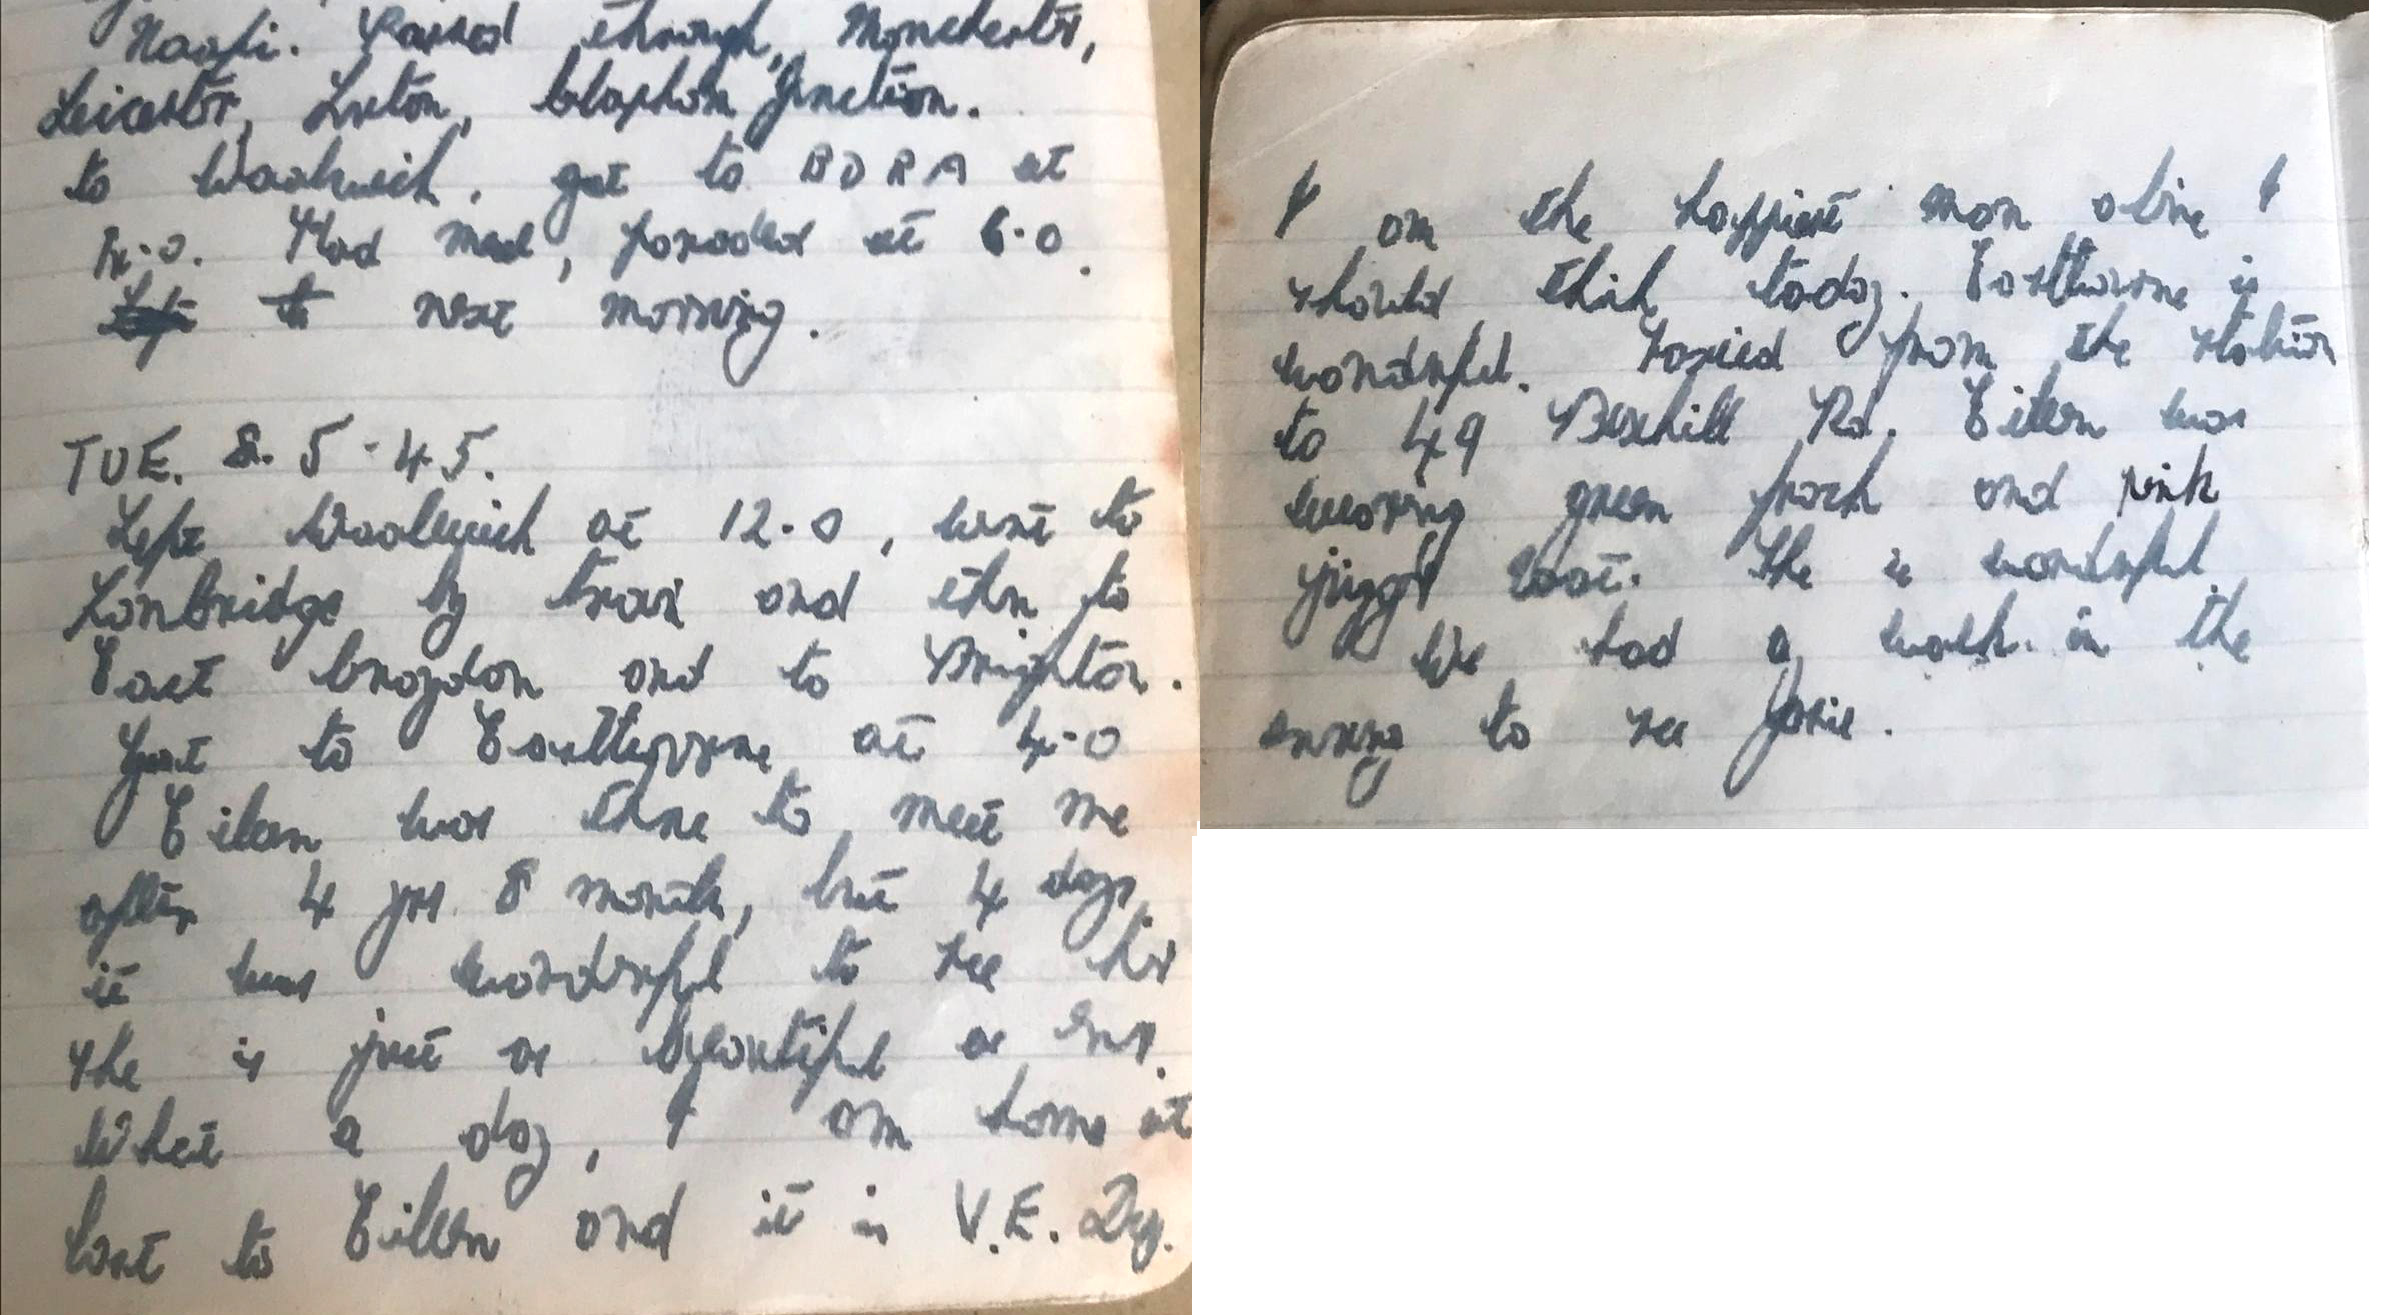 Naafi. Passed through, Manchester,
Leicester, Luton, Clapham Junction.
to Woolwich, got to BDRA at
4-0. Had meal, paraded at 6-0.
next morning.
TUE. 8. 5-45.
Left Woolwich at 12-0, went to
Lonbridge by train and then to
East Croydon and to Brighton.
Got to Eastbourne at 4-0
Eileen was there to meet me
after 4 yrs 8 months, but 4 days,
it was wonderful to see her
she is just as beautiful as ever.
What a day, I am home at
last to Eileen and it is V.E. Day.
I am the happiest man alive I
should think today. Eastbourne is
wonderful. Taxied from the station
to 49 Bexhill Rd. Eileen was
wearing green frock and pink
jigger coat. She is wonderful.
We had a walk in the
evening to see Josie.